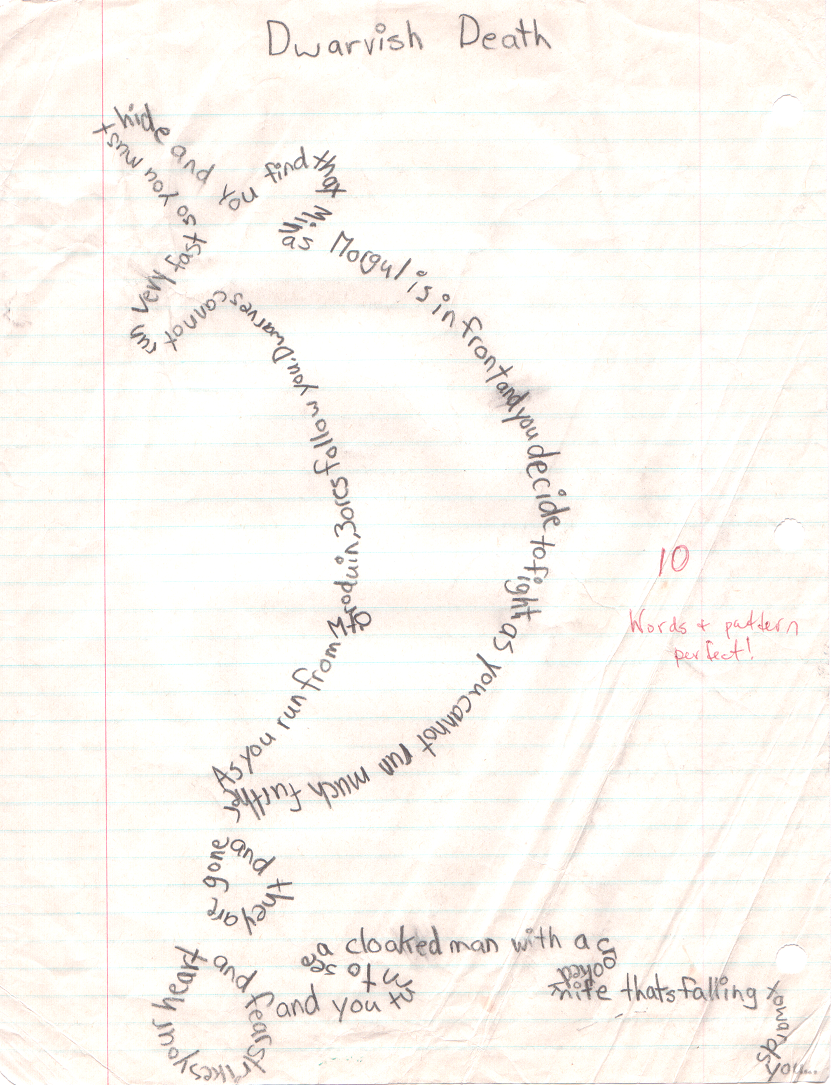 Dwarvish Death
As you run from Mt Oroduin, 3 orcs follow you. Dwarves cannot
run very fast so you must
hide and you find that
Minas Morgul is in front and you decide to fight as you cannot run much further
and they are gone
and fear strikes your heart
and you turn to see
a cloaked man with a crooked
knife thats falling towards you...
10
Words + pattern
perfect!